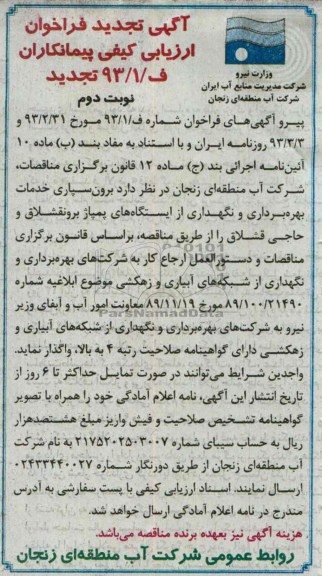 آگهی تجدید فراخوان
ارزیابی کیفی پیمانکاران
ف/۹۳/۱ تجدید
وزارت نیرو
شرکت مدیریت منابع آب ایران
شرکت آب منطقه‌ای زنجان
نوبت دوم
پیرو آگهی‌های فراخوان شماره ف/۹۳/۱ مورخ ۹۳/۲/۳۱ و
۹۳/۳/۳ روزنامه ایران و با استناد به مفاد بند (ب) ماده ۱۰
آئین‌نامه اجرائی بند (ج) ماده ۱۲ قانون برگزاری مناقصات،
شرکت آب منطقه‌ای زنجان در نظر دارد برون‌سپاری خدمات
بهره‌برداری و نگهداری از ایستگاه‌های پمپاژ برونقشلاق و
حاجی قشلاق را از طریق مناقصه، براساس قانون برگزاری
مناقصات و دستورالعمل ارجاع کار به شرکت‌های بهره‌برداری و
نگهداری از شبکه‌های آبیاری و زهکشی موضوع ابلاغیه شماره
۸۹/۱۰۰/۲۱۴۹۰ مورخ ۸۹/۱۱/۱۹ معاونت امور آب و آبفای وزیر
نیرو به شرکت‌های بهره‌برداری و نگهداری از شبکه‌های آبیاری و
زهکشی دارای گواهینامه صلاحیت رتبه ۴ به بالا، واگذار نماید.
واجدین شرایط می‌توانند در صورت تمایل حداکثر تا ۶ روز از
تاریخ انتشار این آگهی، نامه اعلام آمادگی خود را همراه با تصویر
گواهینامه تشخیص صلاحیت و فیش واریز مبلغ هشتصدهزار
ریال به حساب سیبای شماره ۲۱۷۵۲۰۲۵۰۳۰۰۷ به نام شرکت
آب منطقه‌ای زنجان از طریق دورنگار شماره ۰۲۴۳۳۴۴۰۰۲۷
ارسال نمایند. اسناد ارزیابی کیفی با پست سفارشی به آدرس
مندرج در نامه اعلام آمادگی ارسال خواهد شد.
هزینه آگهی نیز بعهده برنده مناقصه می‌باشد.
روابط عمومی شرکت آب منطقه‌ای زنجان
ParsNamadData